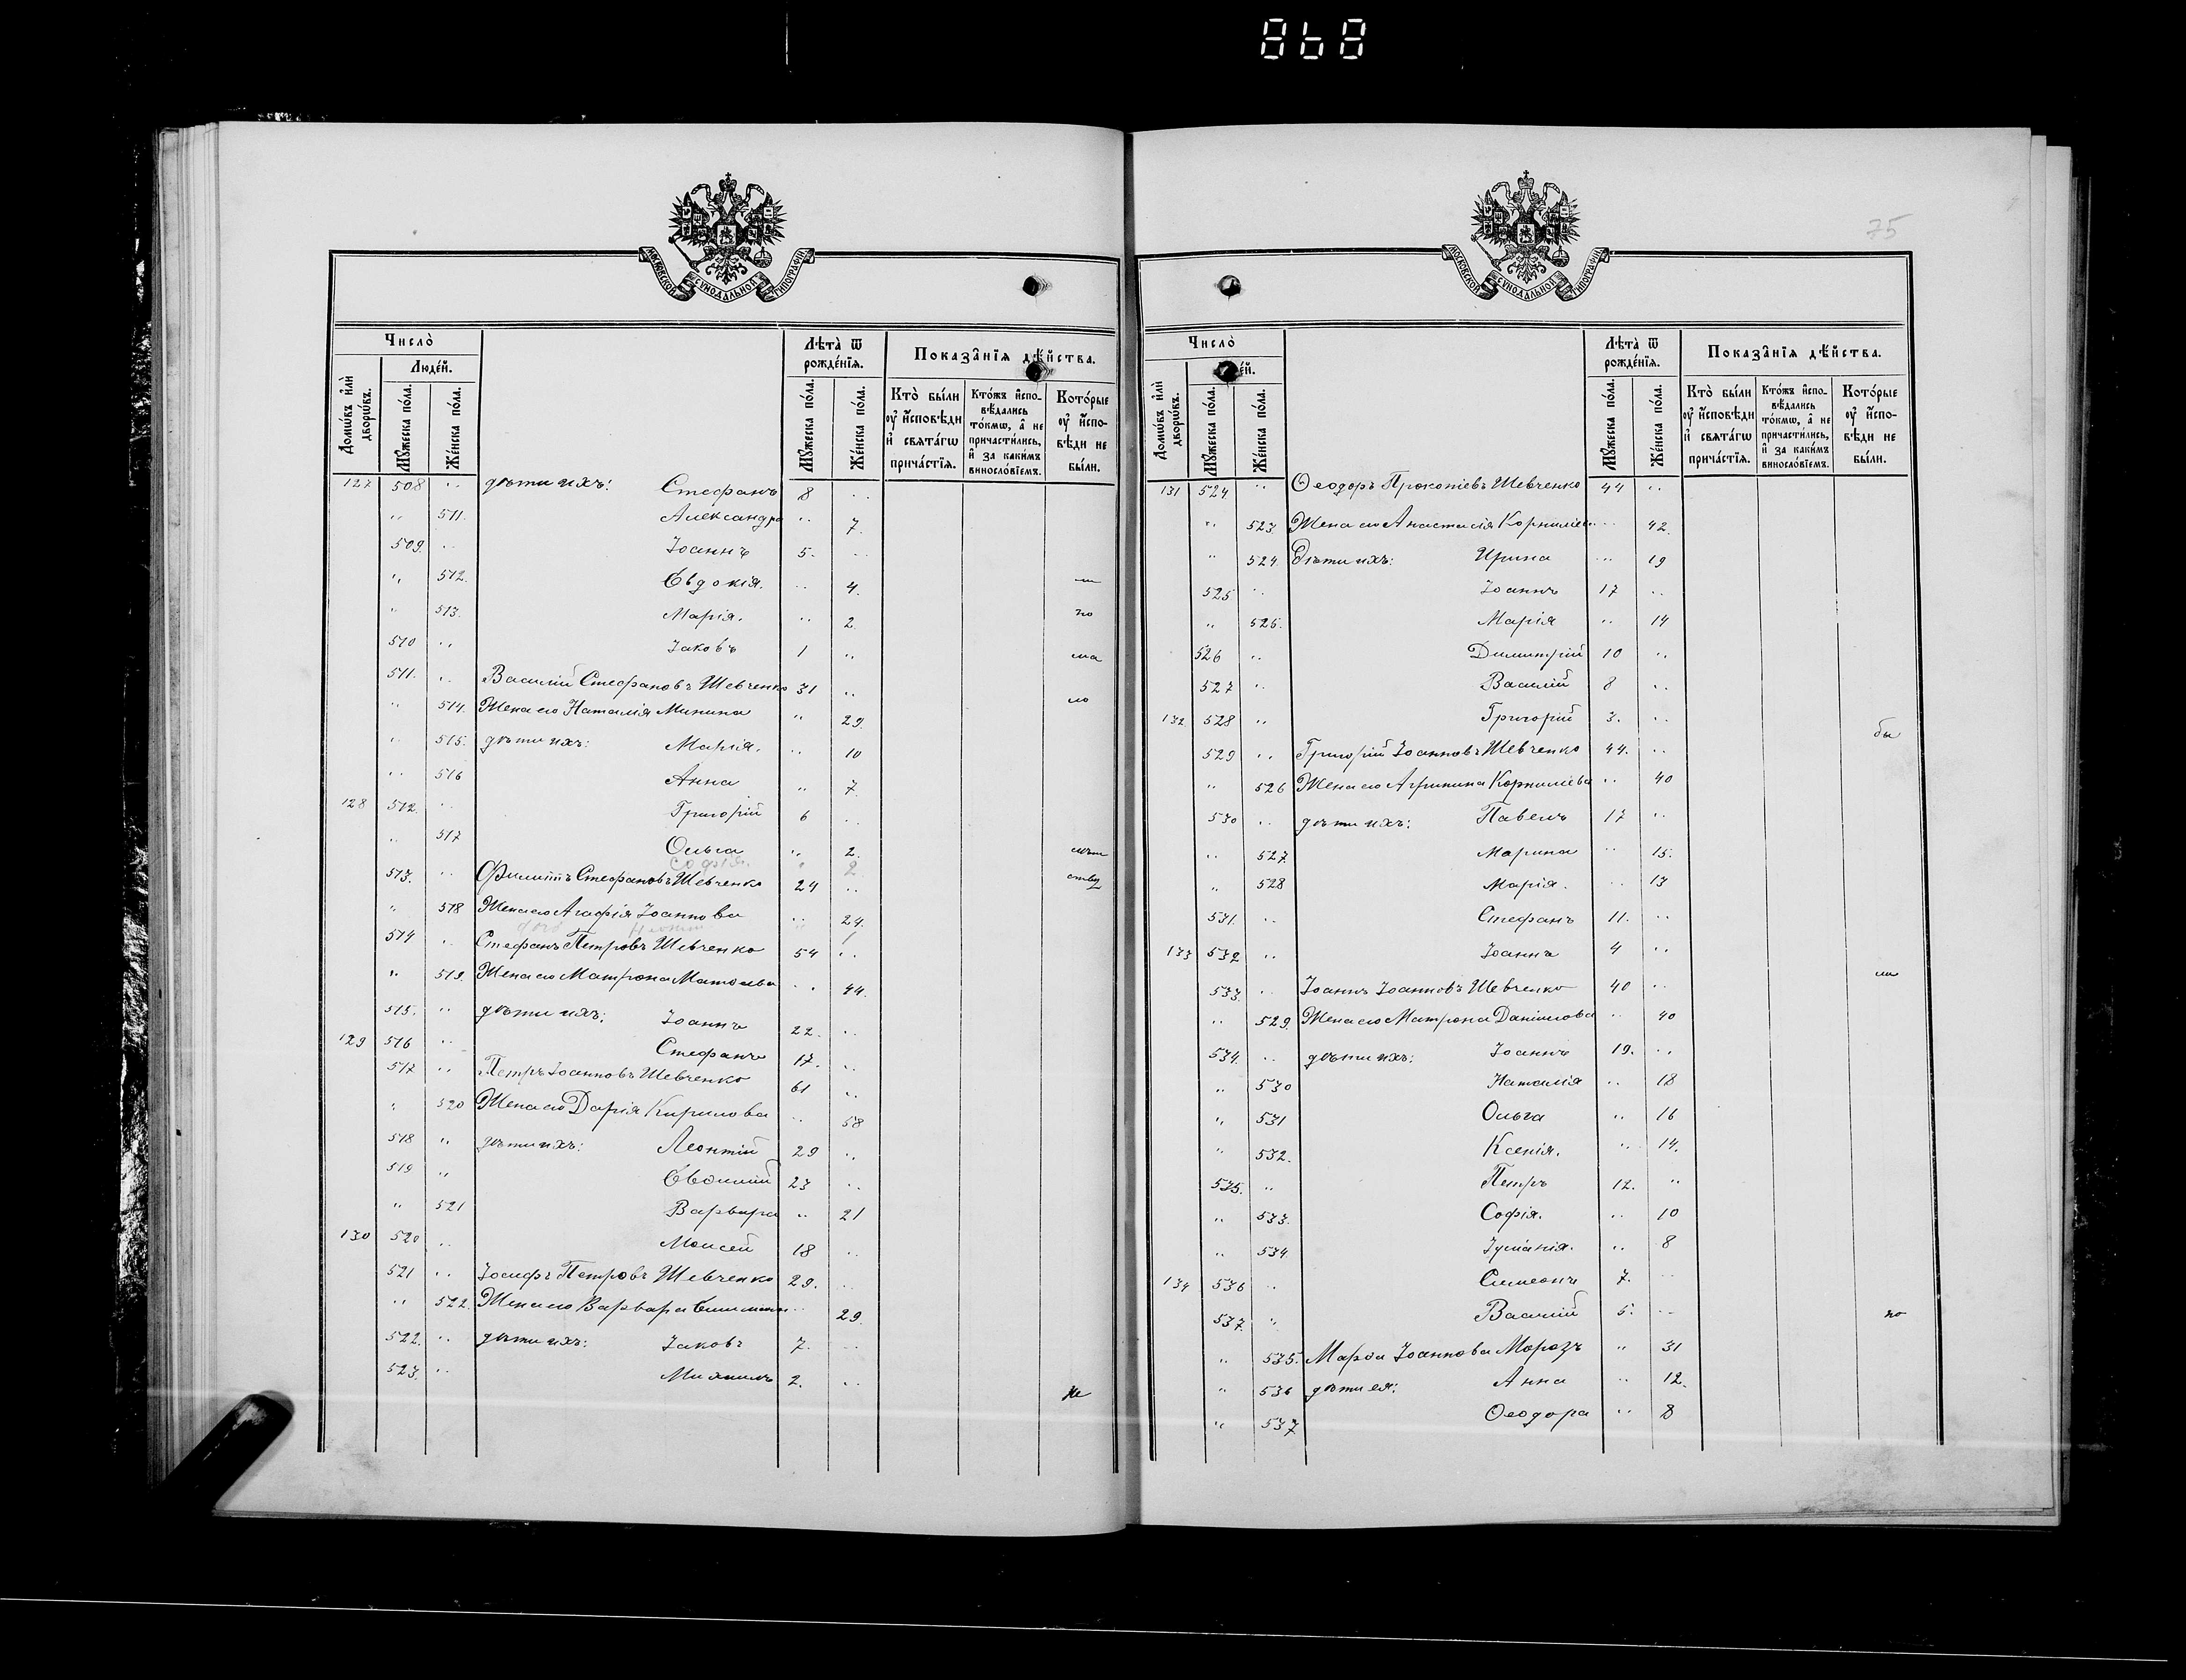 868
МОСКОВСКОЙ СѴНОДАЛЬНОЙ ТИПОГРАФІИ
Число̀
Люде́й.
Домѡ́въ и҆лѝ дворѡ́въ.
Мꙋ́жеска по́ла.
Же́нска по́ла.
Лѣта̀ ѿ рожде́нїѧ.
Мꙋ́жеска по́ла.
Же́нска по́ла.
Показа̑нїѧ дѣ́йства.
Кто̀ бы́ли ᲂу҆ и҆́сповѣди и҆ свѧта́гѡ прича́стїѧ.
Кто́жъ и҆спо- вѣ́дались то́кмѡ, а҆ не причасти́лись, и҆ за каки́мъ винослові́емъ.
Кото́рые ᲂу҆ и҆́спо- вѣди не бы́ли.
127 508 " дѣти ихъ: Стефанъ 8 "
" 511. Александра " 7.
509. " Іоаннъ 5. "
" 512. Евдокія. " 4.
" 513. Марія. " 2. по
510 " Іаковъ 1 "
511. " Василій Стефановъ Шевченко 31 "
" 514. Жена его Наталія Минина " 29.
" 515. дѣти ихъ: Марія. " 10
" 516 Анна " 7.
128 512. " Григорій 6 "
" 517 Ольга " 2.
Софія. " 2
513. " Филиппъ Стефановъ Шевченко 24 " ству
" 518 Жена его Агафія Іоаннова " 24.
514 " Стефанъ Петровъ Шевченко 54 "
" 519. Жена его Матрона Матѳеева " 44.
515. " дѣти ихъ: Іоаннъ 22. "
129 516 " Стефанъ 17. "
517 " Петръ Іоанновъ Шевченко 61 "
" 520 Жена его Дарія Кирилова " 58
518 " дѣти ихъ: Леонтій 29 "
519 " Евѳимій 23 "
" 521 Варвара " 21
130 520 " Моисей 18 "
521 " Іосифъ Петровъ Шевченко 29. "
" 522. Жена его Варвара " 29.
522. " дѣти ихъ: Іаковъ 7. "
523. " Михаилъ 2. " не
75
МОСКОВСКОЙ СѴНОДАЛЬНОЙ ТИПОГРАФІИ
Число̀
Люде́й.
Домѡ́въ и҆лѝ дворѡ́въ.
Мꙋ́жеска по́ла.
Же́нска по́ла.
Лѣта̀ ѿ рожде́нїѧ.
Мꙋ́жеска по́ла.
Же́нска по́ла.
Показа̑нїѧ дѣ́йства.
Кто̀ бы́ли ᲂу҆ и҆́сповѣди и҆ свѧта́гѡ прича́стїѧ.
Кто́жъ и҆спо- вѣ́дались то́кмѡ, а҆ не причасти́лись, и҆ за каки́мъ винослові́емъ.
Кото́рые ᲂу҆ и҆́спо- вѣди не бы́ли.
131 524 " Ѳеодоръ Прокопіевъ Шевченко 44 "
" 523. Жена его Анастасія Корниліева " 42.
" 524. Дѣти ихъ: Ирина " 19
525 " Іоаннъ 17 "
" 525. Марія " 14
526 " Димитрій 10 "
527 " Василій 8 "
132 528 " Григорій 3. "
бы
529 " Григорій Іоанновъ Шевченко 44. "
" 526 Жена его Агрипина Корниліева " 40
530 " дѣти ихъ: Павелъ 17 "
" 527. Марина " 15.
" 528 Марія. " 13
531. " Стефанъ 11. "
133 532 " Іоаннъ 4 "
ли
533. " Іоаннъ Іоанновъ Шевченко 40 "
" 529. Жена его Матрона Даніилова " 40
534. " дѣти ихъ: Іоаннъ 19. "
" 530 Наталія " 18
" 531 Ольга " 16
" 532. Ксенія. " 14.
535. " Петръ 12. "
" 533. Софія. " 10
" 534. Іуліанія. " 8
134 536 " Симеонъ 7. "
537. " Василій 5. " по
" 535. Марѳа Іоаннова Морозъ " 31
" 536 дѣти ея: Анна " 12.
" 537 Ѳеодора " 8